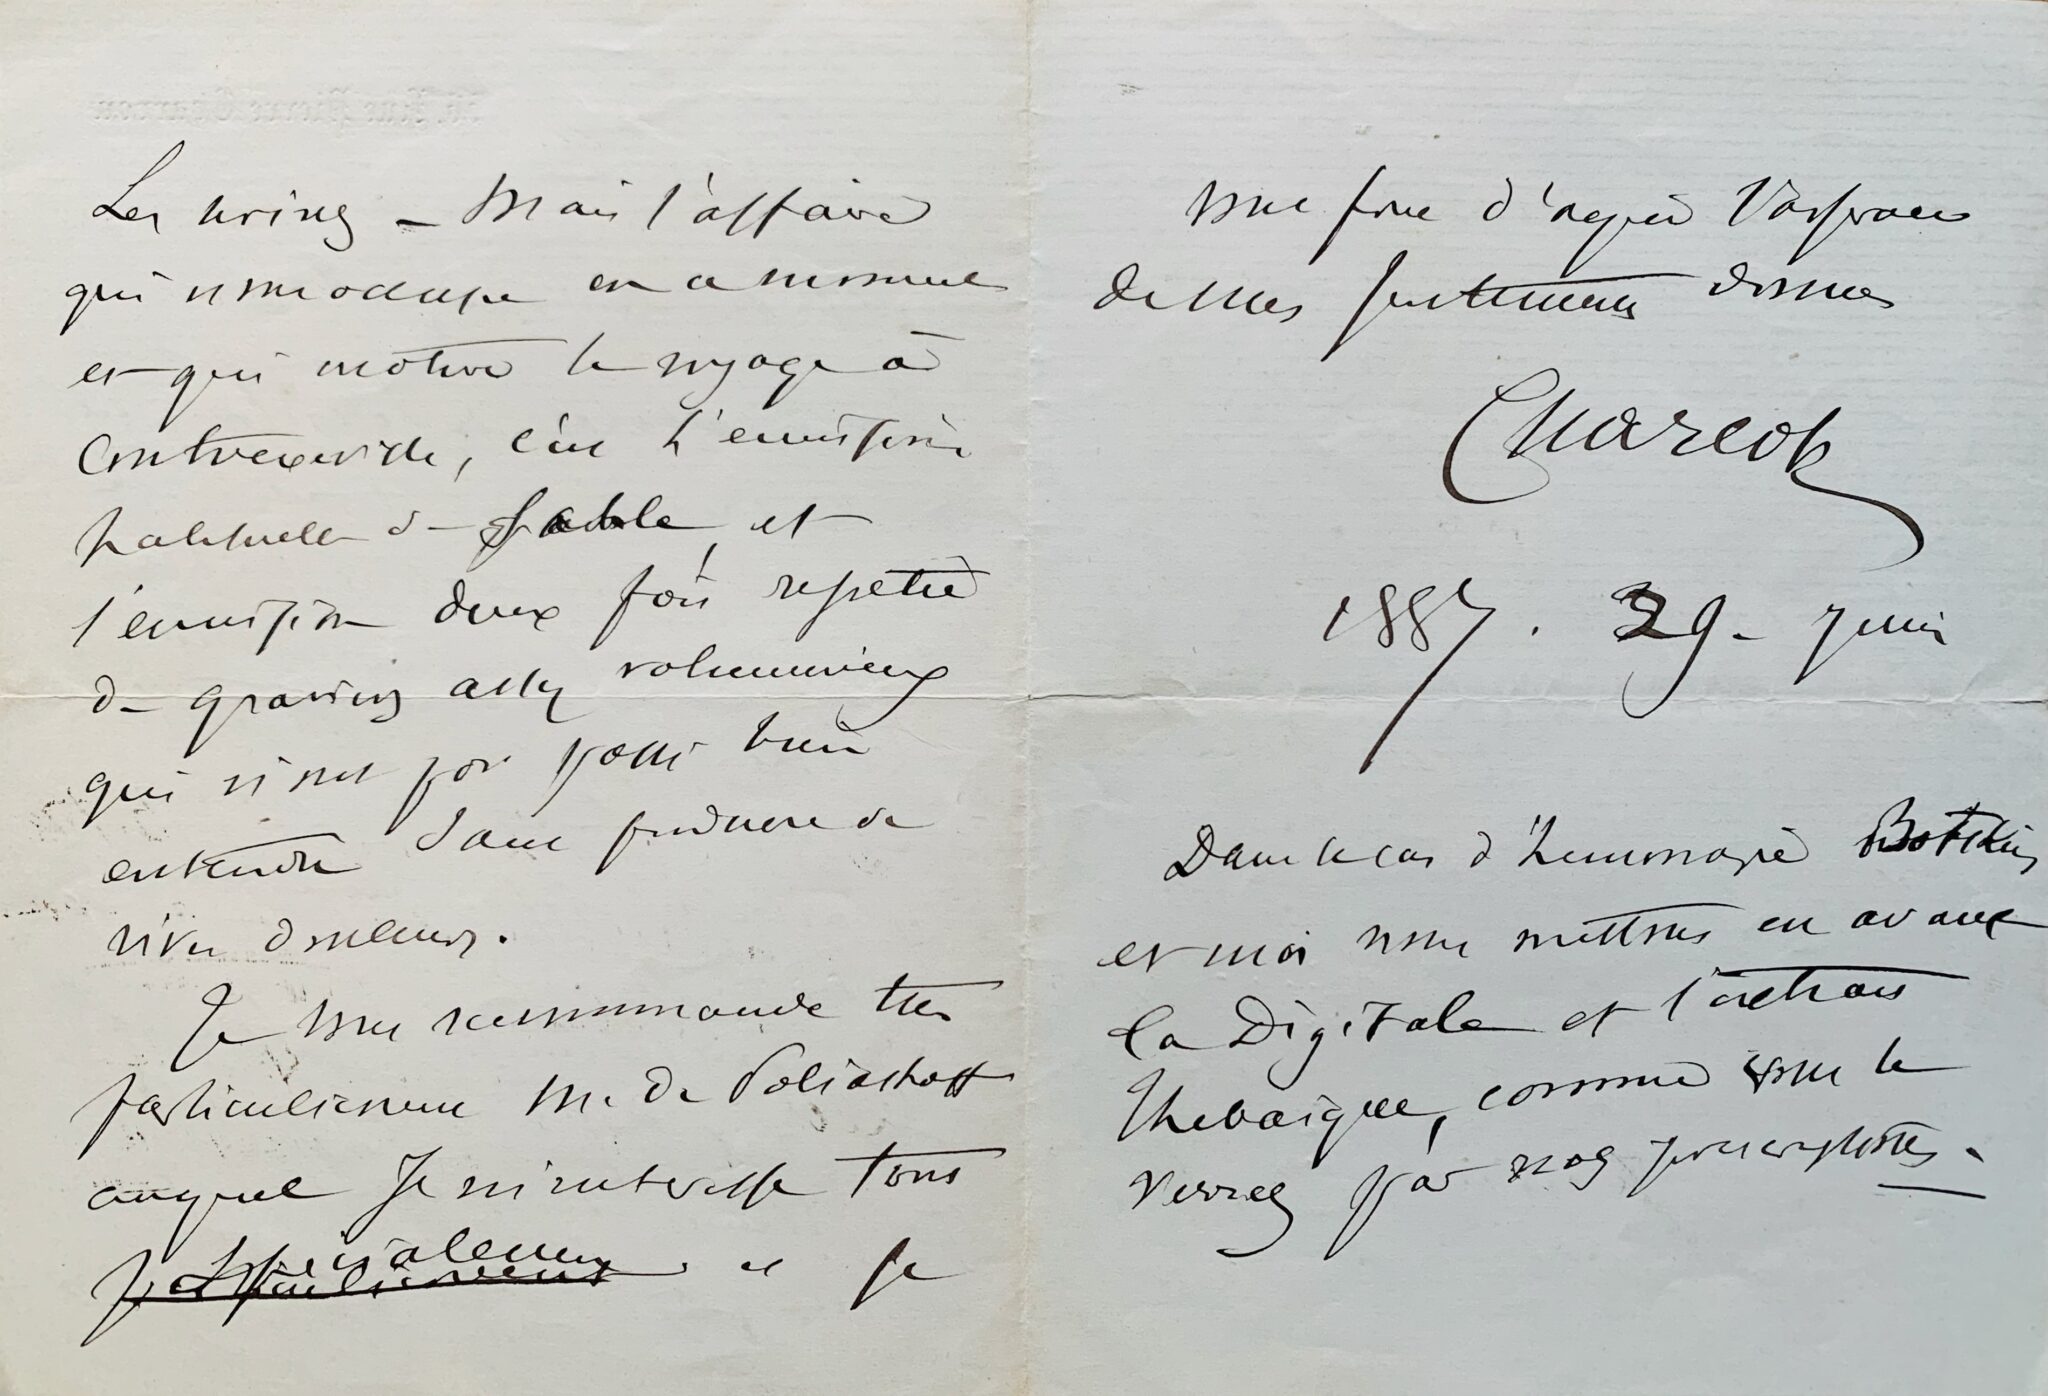 les urines – Mais l'affaire
qui nous occupe en ce moment
et qui motive le voyage à
Contrexeville, c'est l'emission
habituelle de sable, et
l'emission deux fois repetée
de graviers assez volumineux
qui n'ont pas passé bien
entendu sans produire de
vives douleurs.
Je vous recommande tres
particulierement M. de Poliakoff
auquel je m'interesse tout
specialement et je
vous prie d'agréer l'assurance
de mes sentiments devoués
Charcot
1887. 29 – juin
Dans le cas d'hemorragie Botkin
et moi nous mettons en avant
la Digitale et l'extrait
Thebaique, comme vous le
verrez par nos prescriptions.